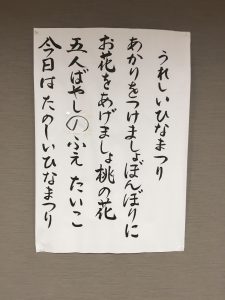 うれしいひなまつり
あかりをつけましょぼんぼりに
お花をあげましょ桃の花
五人ばやしのふえたいこ
今日はたのしいひなまつり